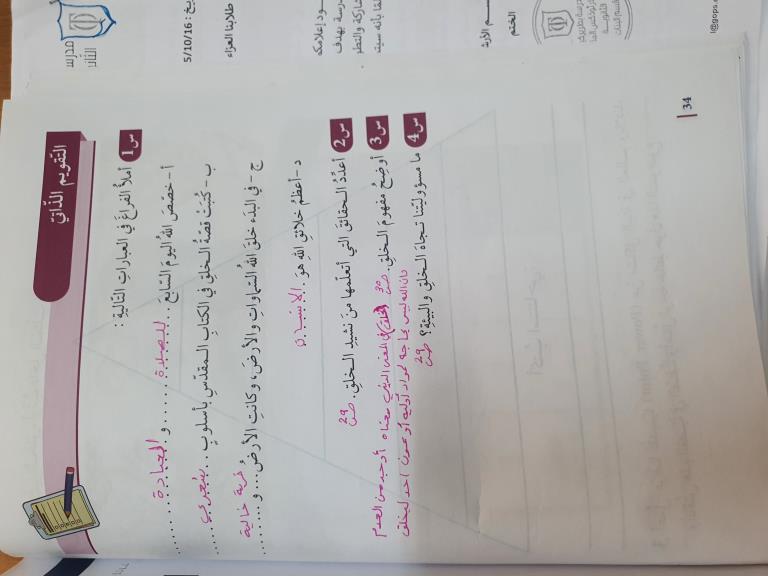 التقويم الذّاتيّ
س1 أملأُ الفراغَ في العباراتِ التّاليةِ :
أ - خصّصَ اللهُ اليومَ السّابعَ ...للصلاة... و...العبادة...
ب - كُتبَتْ قصّةُ الخلقِ في الكتابِ المقدّسِ بأسلوبٍ ...شعري...
ج - في البَدء خلقَ اللهُ السّماواتِ والأرضَ، وكانتِ الأرضُ ...و...
خربة خالية
د - أعظمُ خلائقِ اللهِ هوَ ...الإنسان
س2 أعدّدُ الحقائقَ التي أتعلّمها منْ نشيد الخلقِ. ص29
س3 أوضحُ مفهومَ الخلقِ. ص30 (الخلق) في المعنى الديني معناه أوجد من العدم
فالله ليس بحاجة لمواد أولية أو عون أحد ليخلق
س4 ما مسؤوليّتنا تجاهَ الخلقِ والبيئةِ؟ ص29
34
الختم
5/10/16
طلابنا العزاء